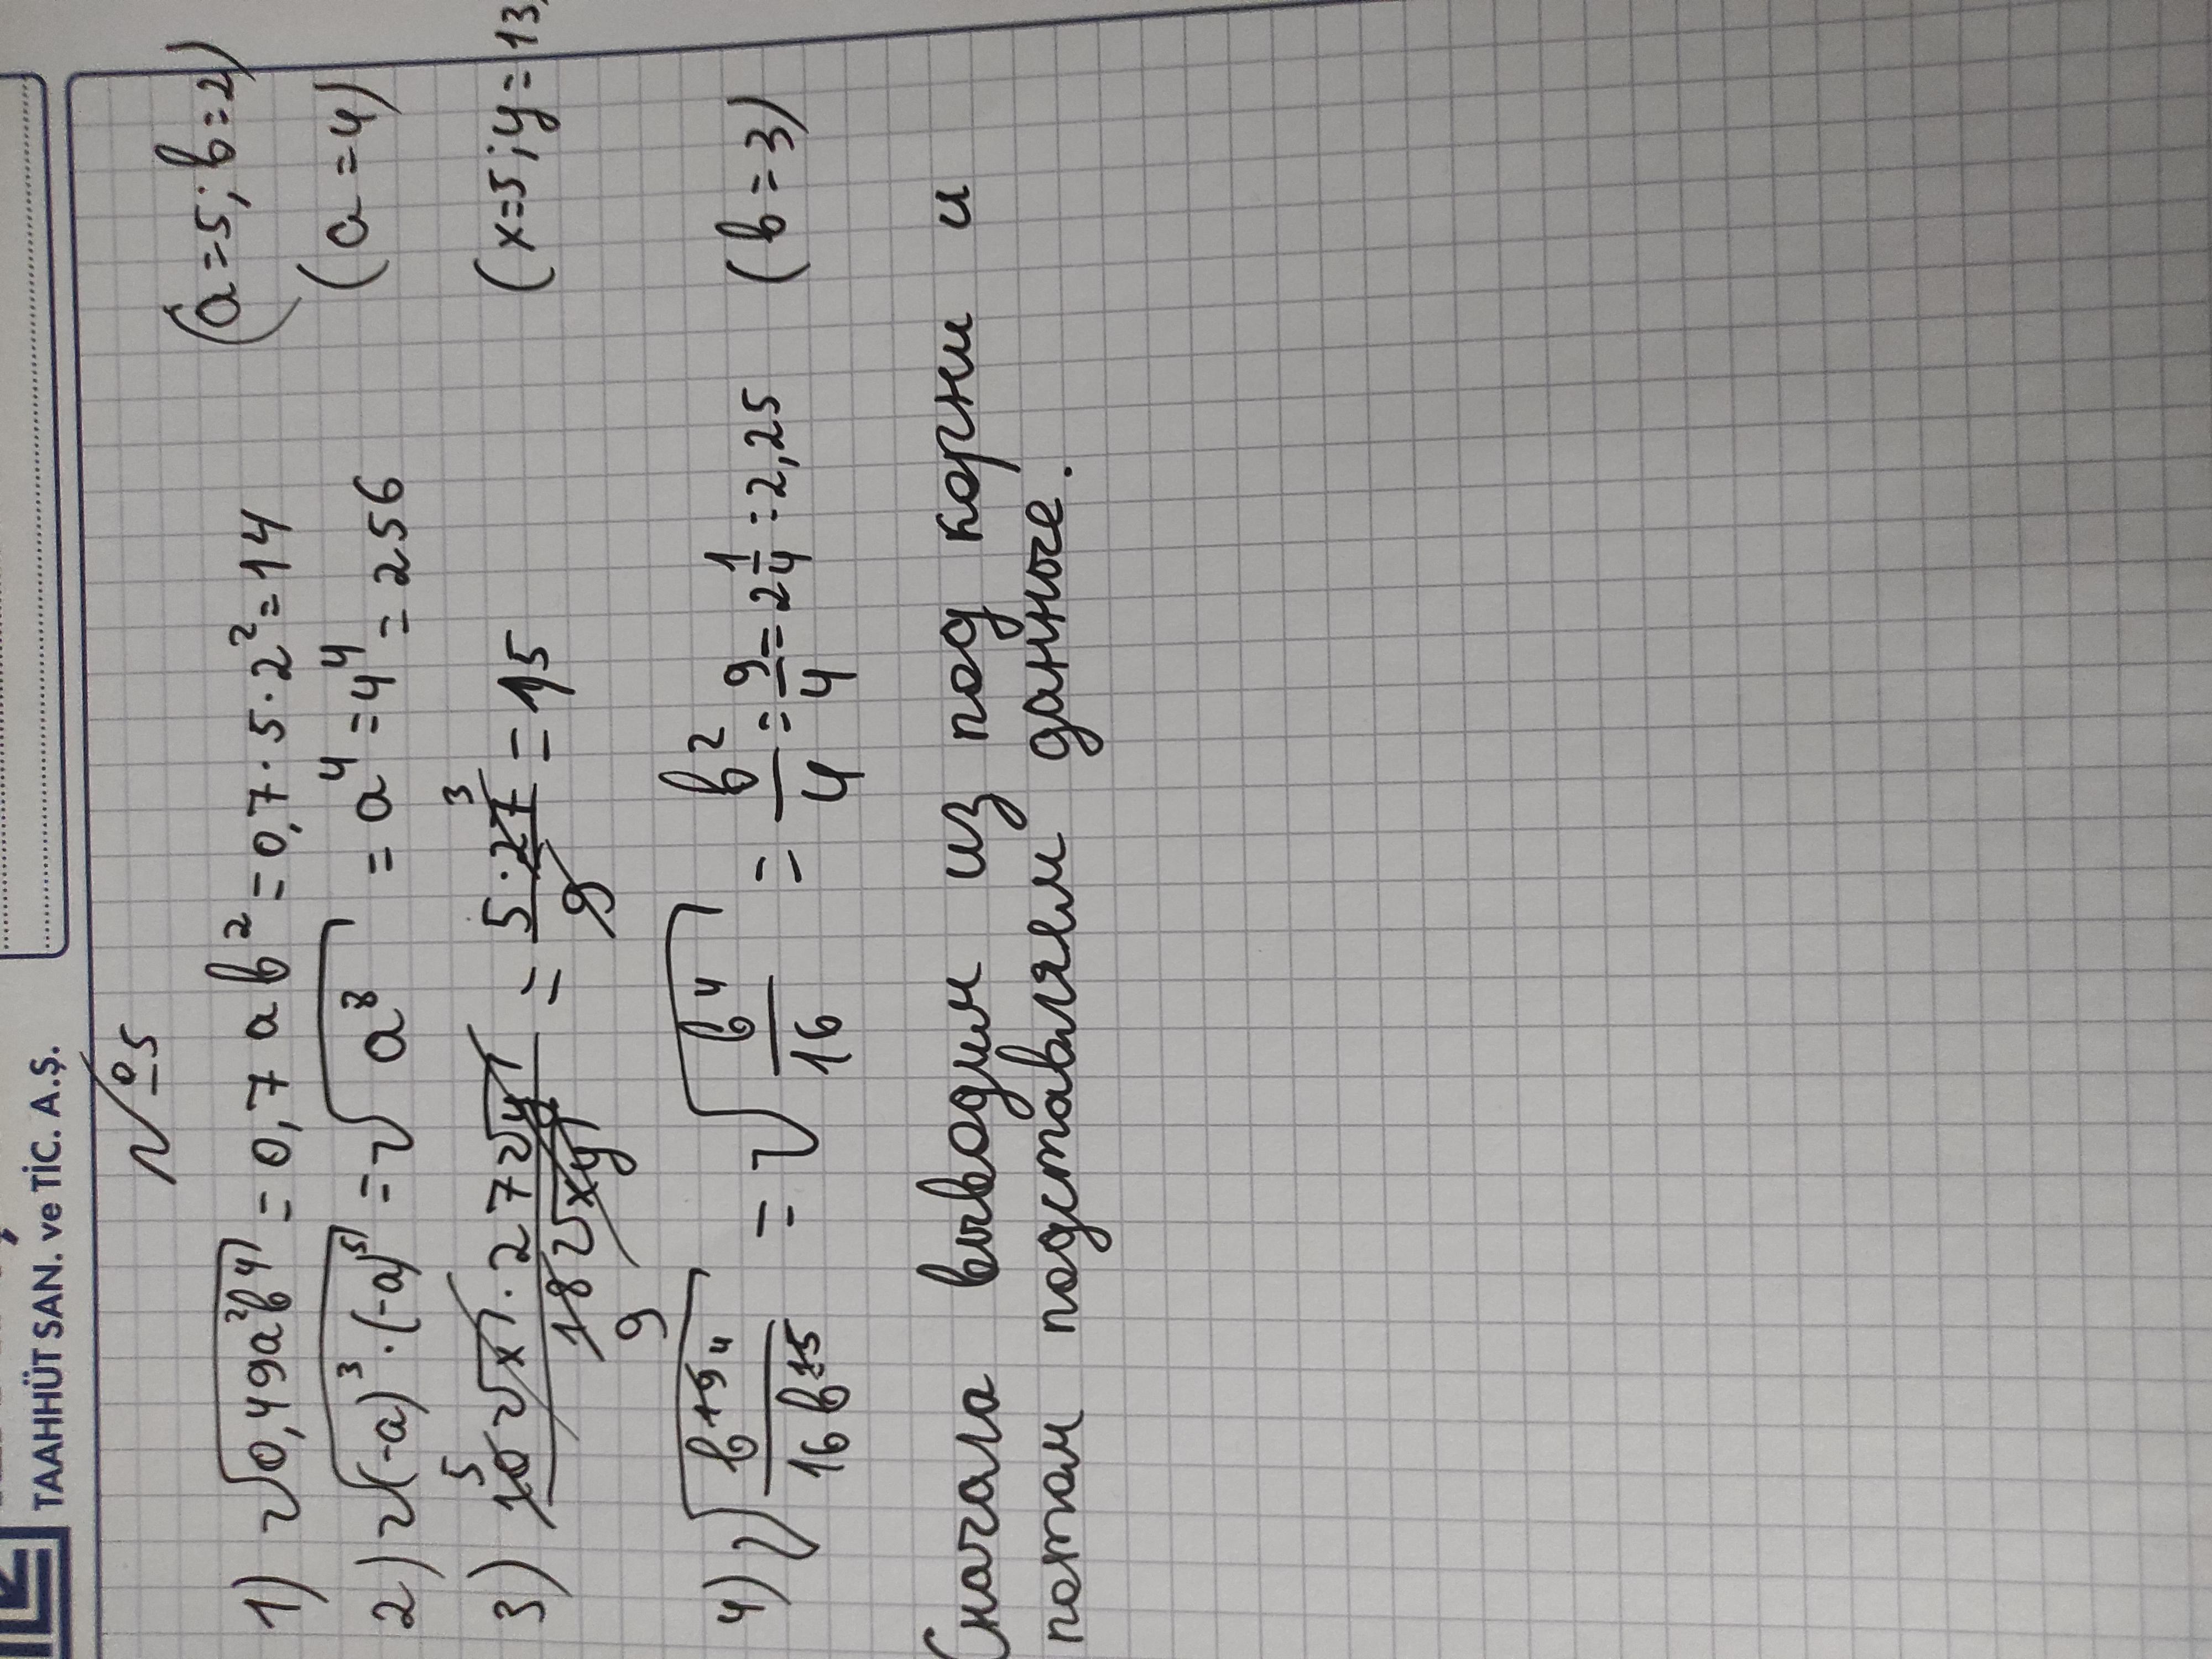 TAAHHÜT SAN. ve TİC. A.Ş.
№5
1) √0,49a²b⁴ = 0,7ab² = 0,7·5·2² = 14 (a=5; b=2)
2) √(-a)³·(-a)⁵ = √a⁸ = a⁴ = 4⁴ = 256 (a=4)
3) 10√x · 27√y / 18√xy = 5·27/9 = 15 (x=5; y=13,
4) √b¹⁹/16b¹⁵ = √b⁴/16 = b²/4 = 9/4 = 2 1/4 = 2,25 (b=3)
Сначала выводим из под корни и
потом подставляем данные.